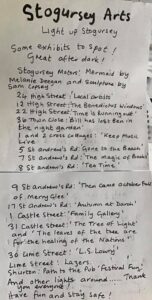 Stogursey Arts
Light up Stogursey
Some exhibits to Spot!
Great after dark!
Stogursey Motors' Mermaid by
Melanie Deegan and Sculpture by
Sam Copsey
24 High Street 'Local Artists
12 High Street 'The Benedict Windows'
22 High Street 'Time is running out'
36 Town Close: Bill has lost Ben in
the night garden'
1 and 2 Cross Cottages: 'Keep Music
Live'
5 St Andrew's Rd: Gone to the Beach'
7 St Andrew's Rd: 'The magic of Books'
8 St Andrew's Rd: 'Tea Time'
9 St Andrew's Rd: 'Then came October full
of Merry Glee'
17 St Andrew's Rd: 'Autumn at Dorch'
1 Castle Street: 'Family Gallery'
31 Castle Street: 'The Tree of Light'
and 'The leaves of the tree are
for the healing of the Nations'
36 Lime Street: 'L.S. Lowry'
Lime Street: Lazers
Shurton: Path to the Pub 'Festival Fun'
And other lights around.... Thank
you everyone!
Have fun and Stay safe!